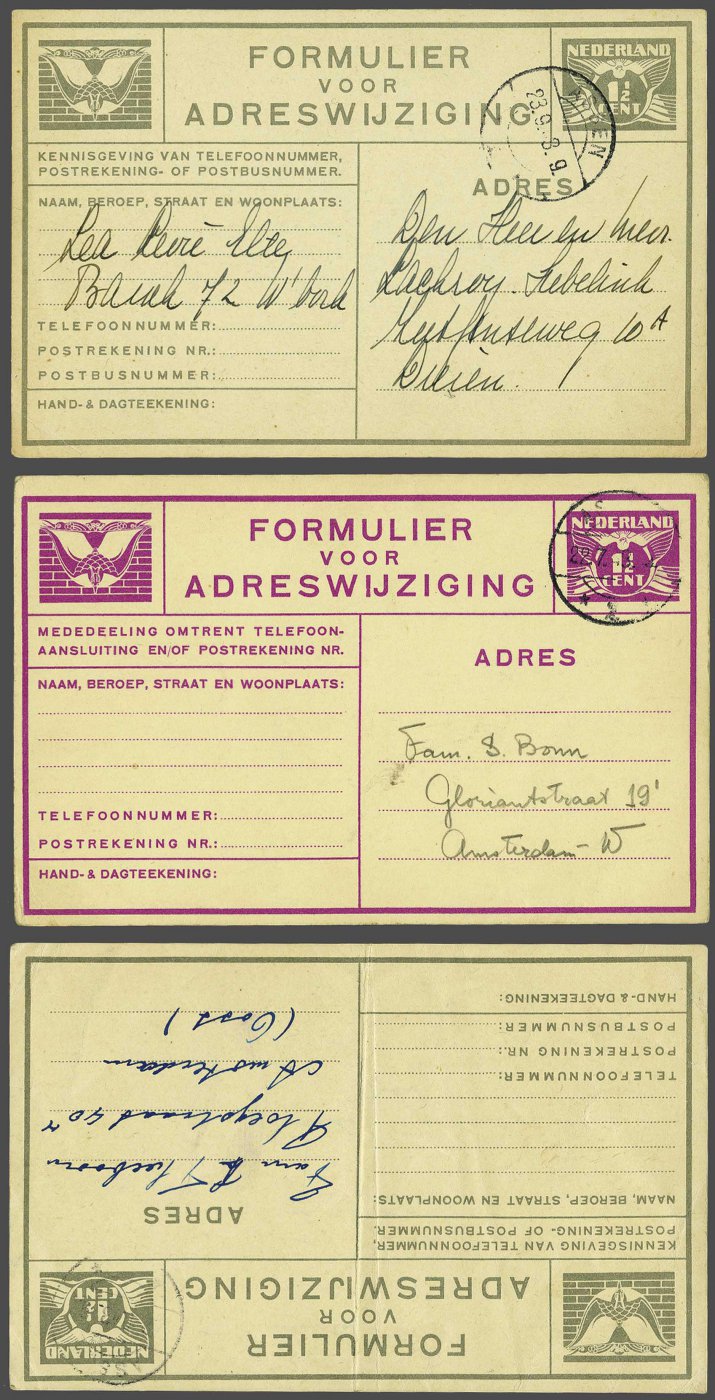 FORMULIER
VOOR
ADRESWIJZIGING
NEDERLAND
1½
CENT
23.9.
KENNISGEVING VAN TELEFOONNUMMER,
POSTREKENING- OF POSTBUSNUMMER.
NAAM, BEROEP, STRAAT EN WOONPLAATS:
Lea
Barak 72 W'bork
TELEFOONNUMMER:
POSTREKENING NR.:
POSTBUSNUMMER:
HAND- & DAGTEEKENING:
ADRES
Den Heer en Mevr.
10 A
FORMULIER
VOOR
ADRESWIJZIGING
NEDERLAND
1½
CENT
MEDEDEELING OMTRENT TELEFOON-
AANSLUITING EN/OF POSTREKENING NR.
NAAM, BEROEP, STRAAT EN WOONPLAATS:
TELEFOONNUMMER:
POSTREKENING NR.:
HAND- & DAGTEEKENING:
ADRES
Fam. S. Bonn
Gloriantstraat 19'
Amsterdam-W
FORMULIER
VOOR
ADRESWIJZIGING
NEDERLAND
1½
CENT
KENNISGEVING VAN TELEFOONNUMMER,
POSTREKENING- OF POSTBUSNUMMER.
NAAM, BEROEP, STRAAT EN WOONPLAATS:
TELEFOONNUMMER:
POSTREKENING NR.:
POSTBUSNUMMER:
HAND- & DAGTEEKENING:
ADRES
Fam
Amsterdam
(Oost)